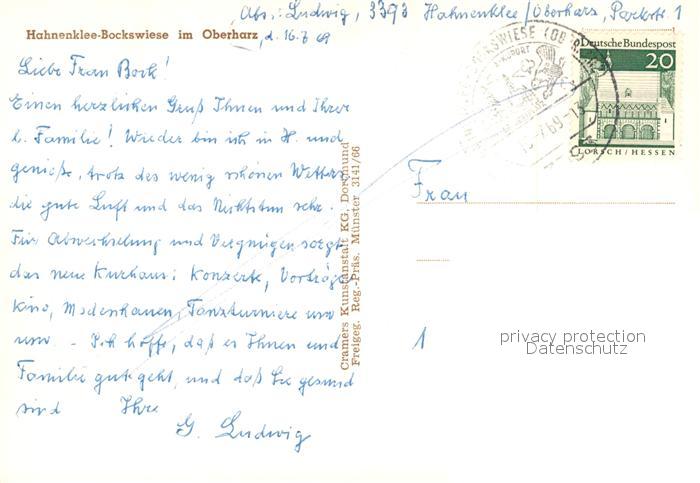 Abs.: Ludwig, 3393 Hahnenklee/Oberharz, Parkstr. 1
Hahnenklee-Bockswiese im Oberharz, d. 16.7.69
Liebe Frau Bock!
Einen herzlichen Gruß Ihnen und Ihrer
l. Familie! Wieder bin ich in H. und
genieße, trotz des wenig schönen Wetters
die gute Luft und das Nichtstun sehr.
Für Abwechselung und Vergnügen sorgt
das neue Kurhaus: Konzerte, Vorträge
Kino, Modenschauen, Tanzturniere usw
usw. - Ich hoffe, daß es Ihnen und
Familie gut geht, und daß Sie gesund
sind Ihre
G. Ludwig
Cramers Kunstanstalt KG, Dortmund
Freigeg. Reg.-Präs. Münster 3141/66
KURORT
Deutsche Bundespost
20
LORSCH/HESSEN
Frau
1
privacy protection
Datenschutz